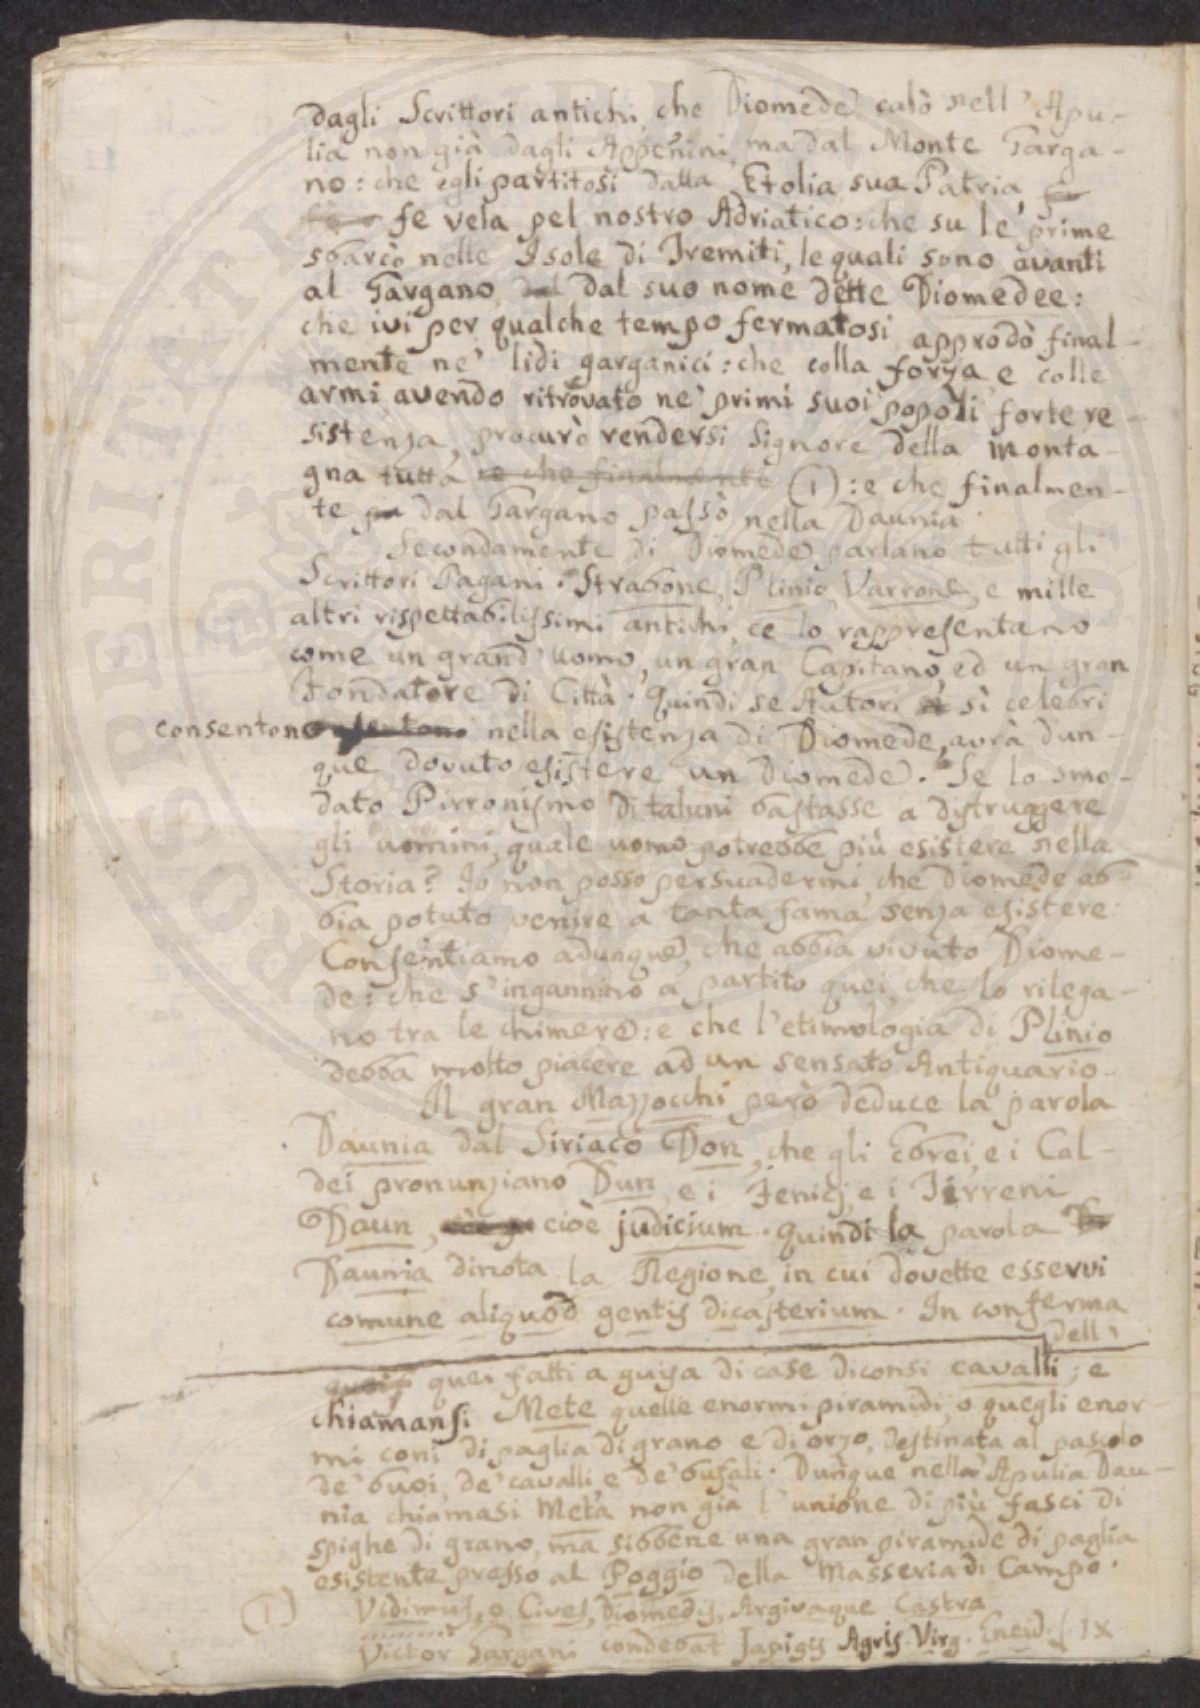 dagli Scrittori antichi, che Diomede calò nell' Apu-
lia non già dagli Appenini, ma dal Monte Garga-
no: che egli partitosi dalla Etolia sua Patria,
fe vela pel nostro Adriatico: che su le prime
sbarcò nelle Isole di Tremiti, le quali sono avanti
al Gargano, dal suo nome dette Diomedee:
che ivi per qualche tempo fermatosi, approdò final-
mente ne' lidi garganici: che colla forza, e colle
armi, avendo ritrovato ne' primi suoi popoli forte re-
sistenza, procurò rendersi Signore della monta-
gna tutta e che finalmente (1): e che finalmen-
te dal Gargano passò nella Daunia.
Secondamente di Diomede parlano tutti gli
Scrittori Pagani. Strabone, Plinio, Varrone, e mille
altri rispettabilissimi antichi, ce lo rappresentano
come un grand' uomo, un gran Capitano, ed un gran
Fondatore di Città. Quindi se Autori sì celebri
consentono nella esistenza di Diomede, avrà dun-
que dovuto esistere un Diomede. Se lo smo-
dato Pirronismo di taluni bastasse a distruggere
gli uomini, quale uomo potrebbe più esistere nella
Storia? Io non posso persuadermi, che Diomede ab-
bia potuto venire a tanta fama, senza esistere.
Consentiamo adunque, che abbia vivuto Diome-
de: che s' ingannino a partito quei, che lo rilega-
no tra le chimere: e che l'etimologia di Plinio
debba molto piacere ad un sensato Antiquario.
Il gran Mazzocchi però deduce la parola
Daunia dal Siriaco Don, che gli Ebrei, e i Cal-
dei pronunziano Dun, e i Fenicj, e i Tirreni
Daun, cioè judicium. Quindi la parola
Daunia dinota la Regione, in cui dovette esservi
comune aliquod gentis dicasterium. In conferma
dell'
quei fatti a guisa di case diconsi cavalli; e
chiamansi Mete quelle enormi piramidi, o quegli enor-
mi coni di paglia di grano e di orzo, destinata al pascolo
de' buoi, de' cavalli, e de' bufali. Dunque nella Apulia Dau-
nia chiamasi Meta non già l'unione di più fasci di
spighe di grano, ma sibbene una gran piramide di paglia
esistente presso al Poggio della Masseria di Campo.
(1) Vidimus, o Cives, Diomedis, Argivaque Castra
Victor Gargani condebat Japigis Agris. Virg. Eneid. IX